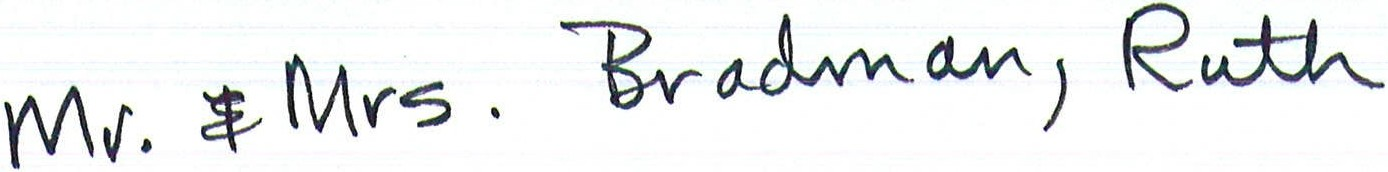 Mr. & Mrs. Bradman, Ruth